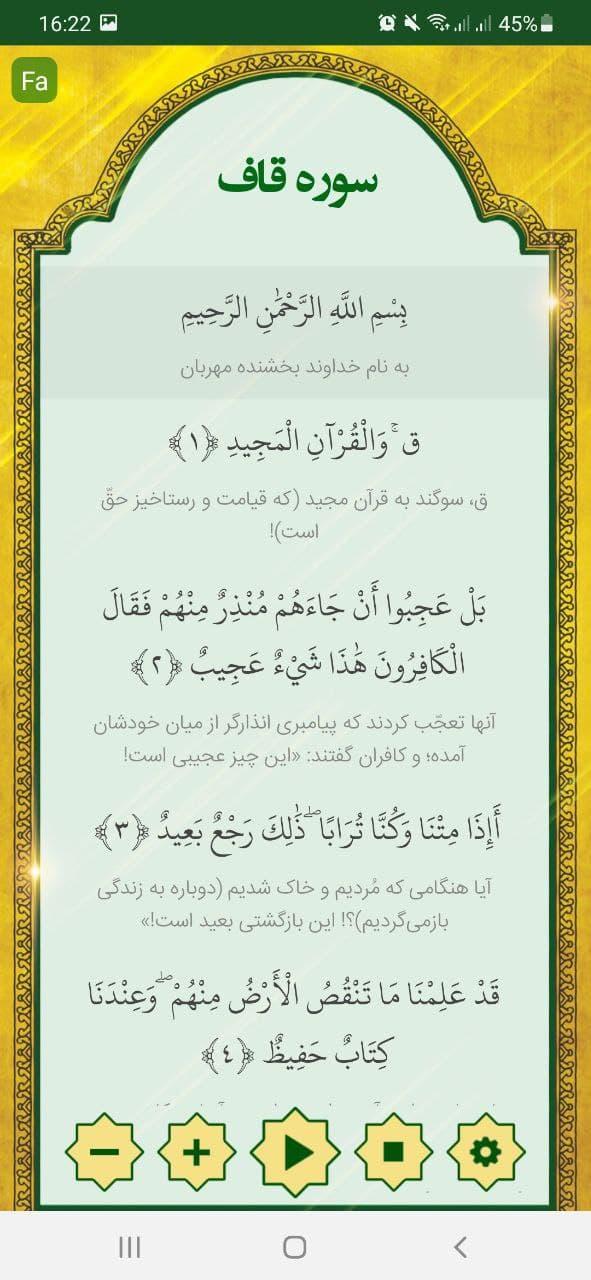 16:22
45%
Fa
سوره قاف
بِسْمِ اللَّهِ الرَّحْمَٰنِ الرَّحِيمِ
به نام خداوند بخشنده مهربان
ق ۚ وَالْقُرْآنِ الْمَجِيدِ ﴿١﴾
ق، سوگند به قرآن مجید (که قیامت و رستاخیز حقّ
است)!
بَلْ عَجِبُوا أَنْ جَاءَهُمْ مُنْذِرٌ مِنْهُمْ فَقَالَ
الْكَافِرُونَ هَٰذَا شَيْءٌ عَجِيبٌ ﴿٢﴾
آنها تعجّب کردند که پیامبری انذارگر از میان خودشان
آمده؛ و کافران گفتند: «این چیز عجیبی است!
أَإِذَا مِتْنَا وَكُنَّا تُرَابًا ۖ ذَٰلِكَ رَجْعٌ بَعِيدٌ ﴿٣﴾
آیا هنگامی که مُردیم و خاک شدیم (دوباره به زندگی
بازمی‌گردیم)؟! این بازگشتی بعید است!»
قَدْ عَلِمْنَا مَا تَنْقُصُ الْأَرْضُ مِنْهُمْ ۖ وَعِنْدَنَا
كِتَابٌ حَفِيظٌ ﴿٤﴾